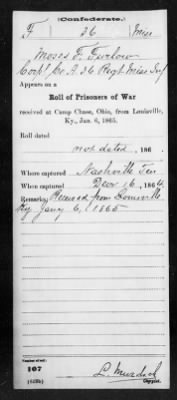 Confederate.
F 36 Miss
Moses F. Furlow
Corpl Co. A. 36 Regt Miss Inf
Appears on a
Roll of Prisoners of War
received at Camp Chase, Ohio, from Louisville,
Ky., Jan. 6, 1865.
Roll dated
not dated, 186 .
Where captured Nashville Ten
When captured Dec 16, 1864
Remarks: Received from Louisville
Ky Jany 6, 1865
Number of roll:
107
(639b)
L. Murdock
Copyist.